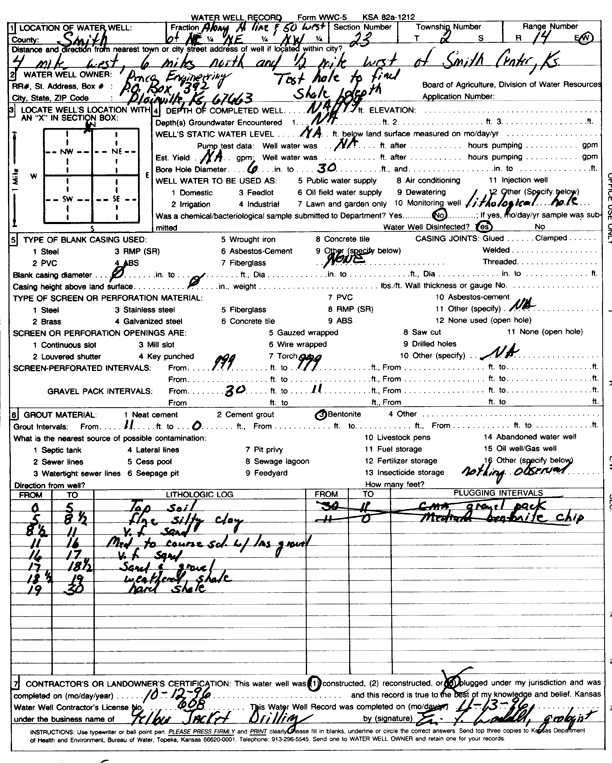 WATER WELL RECORD Form WWC-5 KSA 82a-1212
1 LOCATION OF WATER WELL: Fraction Along A line & 50 West Section Number Township Number Range Number
County: Smith of NE ¼ NE ¼ NW ¼ 23 T 2 S R 14 E/W
Distance and direction from nearest town or city street address of well if located within city?
4 mile west, 6 miles north and 1/2 mile west of Smith Center, Ks.
2 WATER WELL OWNER: Penco Engineering Test hole to find
RR#, St. Address, Box # : P.O. Box 392 Shale depth Board of Agriculture, Division of Water Resources
City, State, ZIP Code Plainville, Ks, 67663 Application Number:
3 LOCATE WELL'S LOCATION WITH AN "X" IN SECTION BOX:
N
NW NE
W E
SW SE
S
1 Mile
4 DEPTH OF COMPLETED WELL ft. ELEVATION:
Depth(s) Groundwater Encountered 1. NA ft. 2. ft. 3. ft.
WELL'S STATIC WATER LEVEL NA ft. below land surface measured on mo/day/yr
Pump test data: Well water was NA ft. after hours pumping gpm
Est. Yield NA gpm; Well water was ft. after hours pumping gpm
Bore Hole Diameter 6 in. to 30 ft., and in. to ft.
WELL WATER TO BE USED AS: 5 Public water supply 8 Air conditioning 11 Injection well
1 Domestic 3 Feedlot 6 Oil field water supply 9 Dewatering 12 Other (Specify below)
2 Irrigation 4 Industrial 7 Lawn and garden only 10 Monitoring well lithological hole
Was a chemical/bacteriological sample submitted to Department? Yes No ; If yes, mo/day/yr sample was sub-
mitted Water Well Disinfected? Yes No
5 TYPE OF BLANK CASING USED: 5 Wrought iron 8 Concrete tile CASING JOINTS: Glued Clamped
1 Steel 3 RMP (SR) 6 Asbestos-Cement 9 Other (specify below) Welded
2 PVC 4 ABS 7 Fiberglass None Threaded
Blank casing diameter 0 in. to ft., Dia in. to ft., Dia in. to ft.
Casing height above land surface 0 in., weight lbs./ft. Wall thickness or gauge No.
TYPE OF SCREEN OR PERFORATION MATERIAL: 7 PVC 10 Asbestos-cement
1 Steel 3 Stainless steel 5 Fiberglass 8 RMP (SR) 11 Other (specify) NA
2 Brass 4 Galvanized steel 6 Concrete tile 9 ABS 12 None used (open hole)
SCREEN OR PERFORATION OPENINGS ARE: 5 Gauzed wrapped 8 Saw cut 11 None (open hole)
1 Continuous slot 3 Mill slot 6 Wire wrapped 9 Drilled holes
2 Louvered shutter 4 Key punched 7 Torch cut 10 Other (specify) NA
SCREEN-PERFORATED INTERVALS: From 999 ft. to 999 ft., From ft. to ft.
From ft. to ft., From ft. to ft.
GRAVEL PACK INTERVALS: From 30 ft. to 11 ft., From ft. to ft.
From ft. to ft., From ft. to ft.
6 GROUT MATERIAL: 1 Neat cement 2 Cement grout 3 Bentonite 4 Other
Grout Intervals: From 11 ft. to 0 ft., From ft. to ft., From ft. to ft.
What is the nearest source of possible contamination: 10 Livestock pens 14 Abandoned water well
1 Septic tank 4 Lateral lines 7 Pit privy 11 Fuel storage 15 Oil well/Gas well
2 Sewer lines 5 Cess pool 8 Sewage lagoon 12 Fertilizer storage 16 Other (specify below)
3 Watertight sewer lines 6 Seepage pit 9 Feedyard 13 Insecticide storage nothing observed
Direction from well? How many feet?
FROM TO LITHOLOGIC LOG FROM TO PLUGGING INTERVALS
0 5 Top soil 30 11 CMA gravel pack
5 8 1/2 fine silty clay 11 0 Medium bentonite chip
8 1/2 11 V. f sand
11 16 Med to course sd. w/ lns gravel
16 17 V. f sand
17 18 1/2 Sand & gravel
18 1/2 19 weathered shale
19 30 hard shale
7 CONTRACTOR'S OR LANDOWNER'S CERTIFICATION: This water well was (1) constructed, (2) reconstructed, or (3) plugged under my jurisdiction and was
completed on (mo/day/year) 10-12-96 and this record is true to the best of my knowledge and belief. Kansas
Water Well Contractor's License No. 608 This Water Well Record was completed on (mo/day/yr) 11-13-96
under the business name of Yellow Jacket Drilling by (signature) geologist
INSTRUCTIONS: Use typewriter or ball point pen. PLEASE PRESS FIRMLY and PRINT clearly. Please fill in blanks, underline or circle the correct answers. Send top three copies to Kansas Department
of Health and Environment, Bureau of Water, Topeka, Kansas 66620-0001. Telephone: 913-296-5545. Send one to WATER WELL OWNER and retain one for your records.
OFFICE USE ONLY